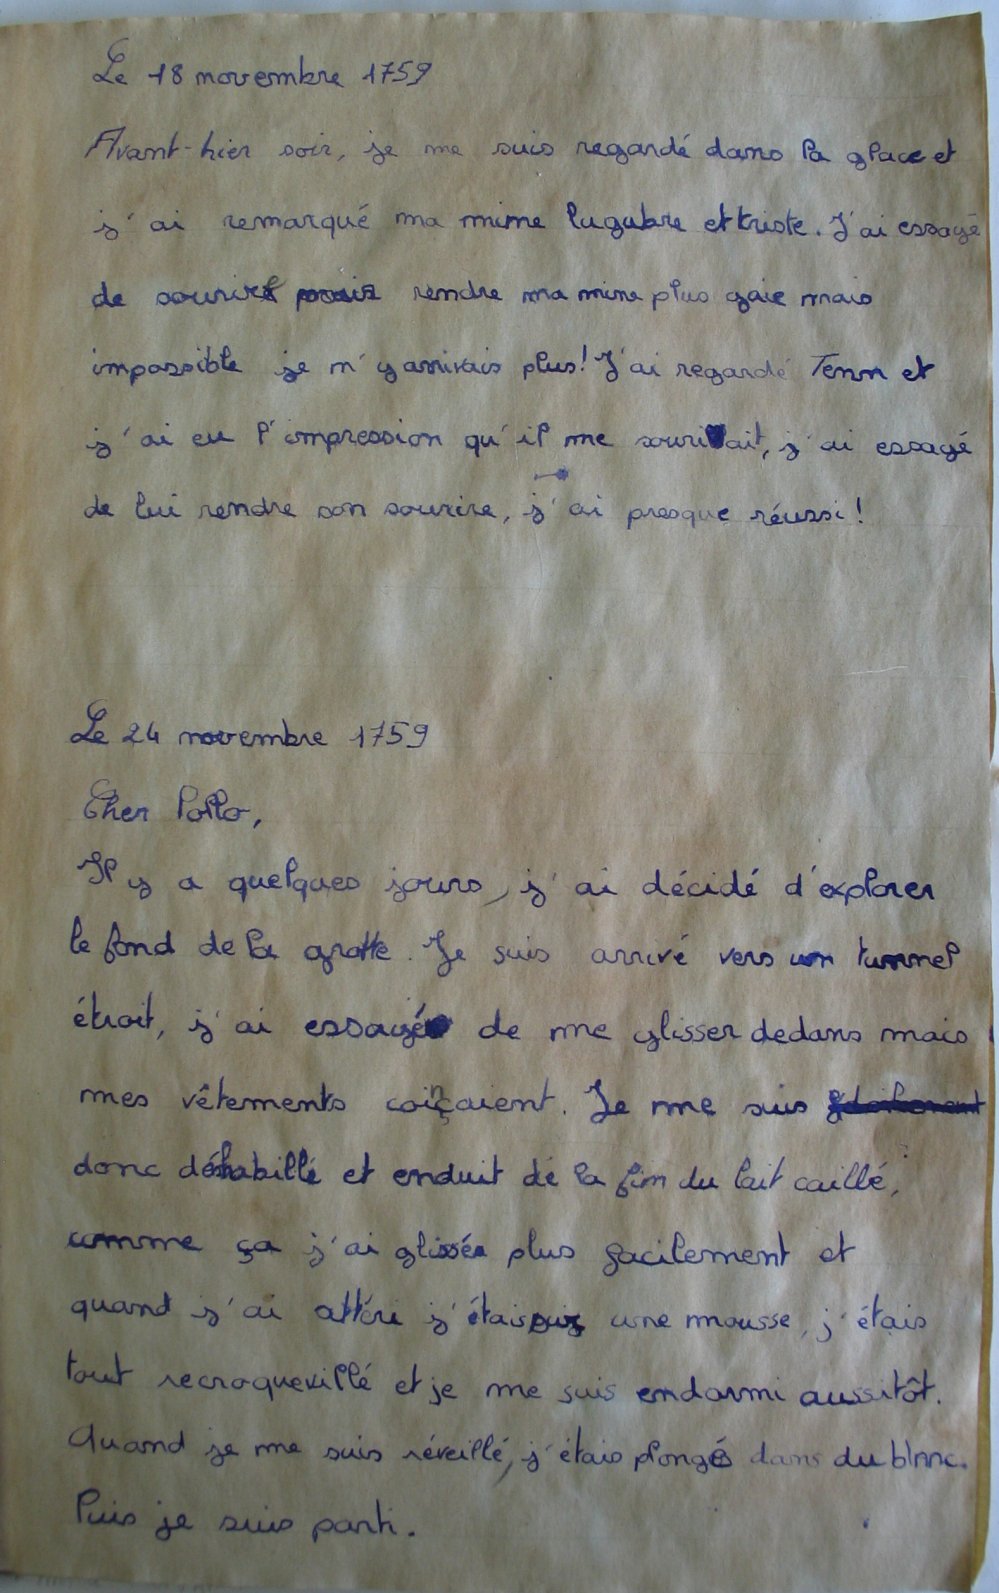 Le 18 novembre 1759
Avant-hier soir, je me suis regardé dans la glace et
j'ai remarqué ma mine lugubre et triste. J'ai essayé
de sourire rendre ma mine plus gaie mais
impossible je n'y arrivais plus! J'ai regardé Tenn et
j'ai eu l'impression qu'il me souriait, j'ai essayé
de lui rendre son sourire, j'ai presque réussi!
Le 24 novembre 1759
Cher Pollo,
Il y a quelques jours, j'ai décidé d'explorer
le fond de la grotte. Je suis arrivé vers un tunnel
étroit, j'ai essayé de me glisser dedans mais
mes vêtements coinçaient. Je me suis
donc déshabillé et enduit de la fin du lait caillé,
comme ça j'ai glissé plus facilement et
quand j'ai attéri j'étais sur une mousse, j'étais
tout recroquevillé et je me suis endormi aussitôt.
Quand je me suis réveillé, j'étais plongé dans du blanc.
Puis je suis parti.